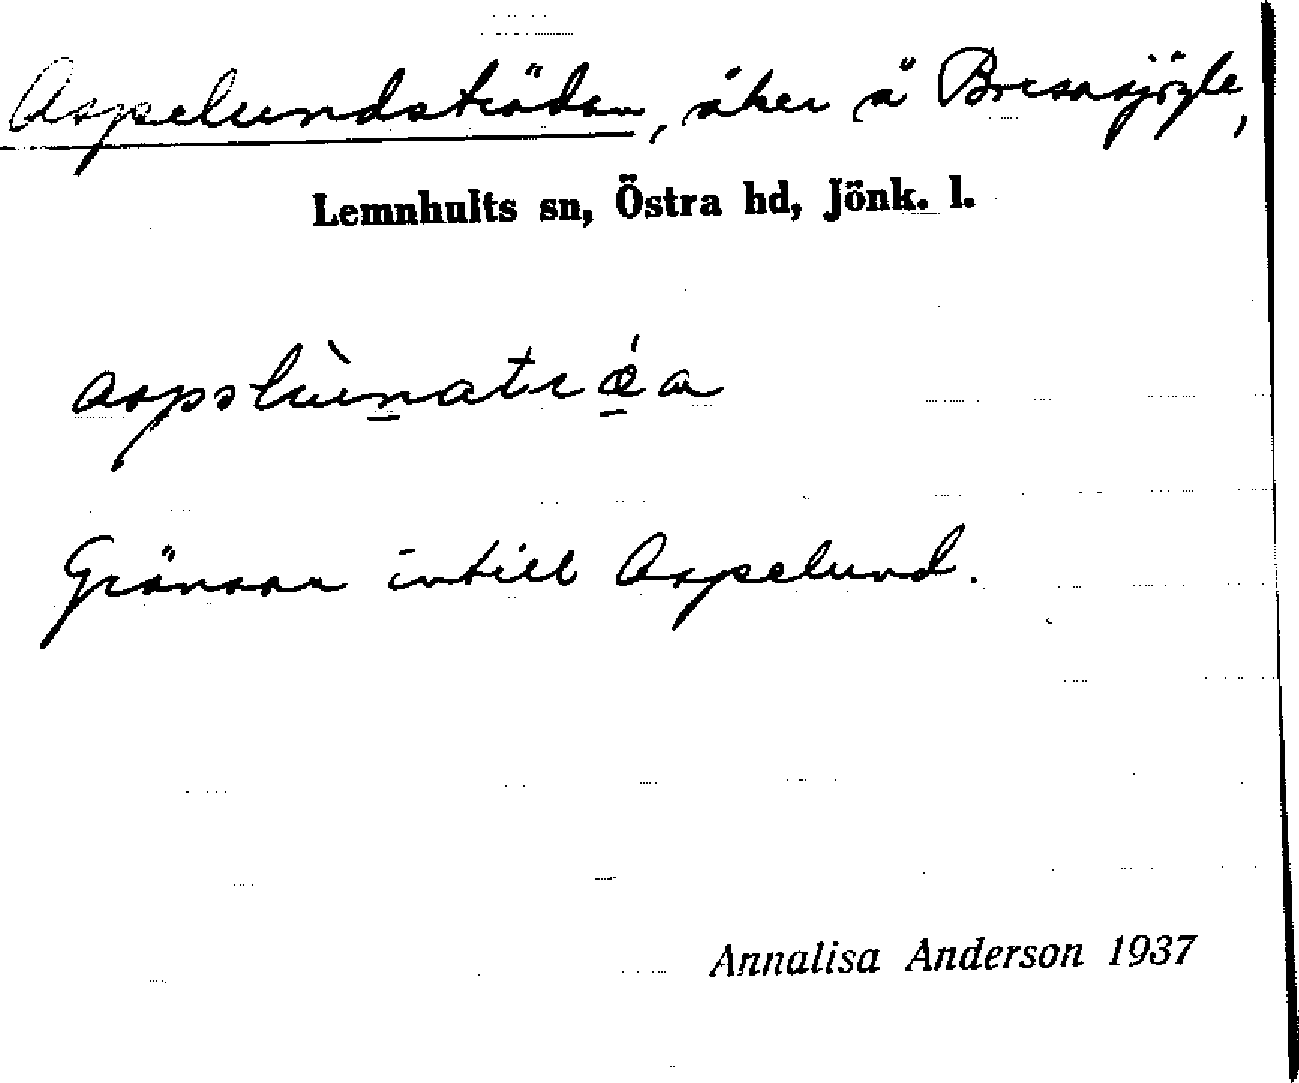 Aspelundsträdan, åker å Bressjögle,
Lemnhults sn, Östra hd, Jönk. l.
Gränsar intill Aspelund.
Annalisa Anderson 1937